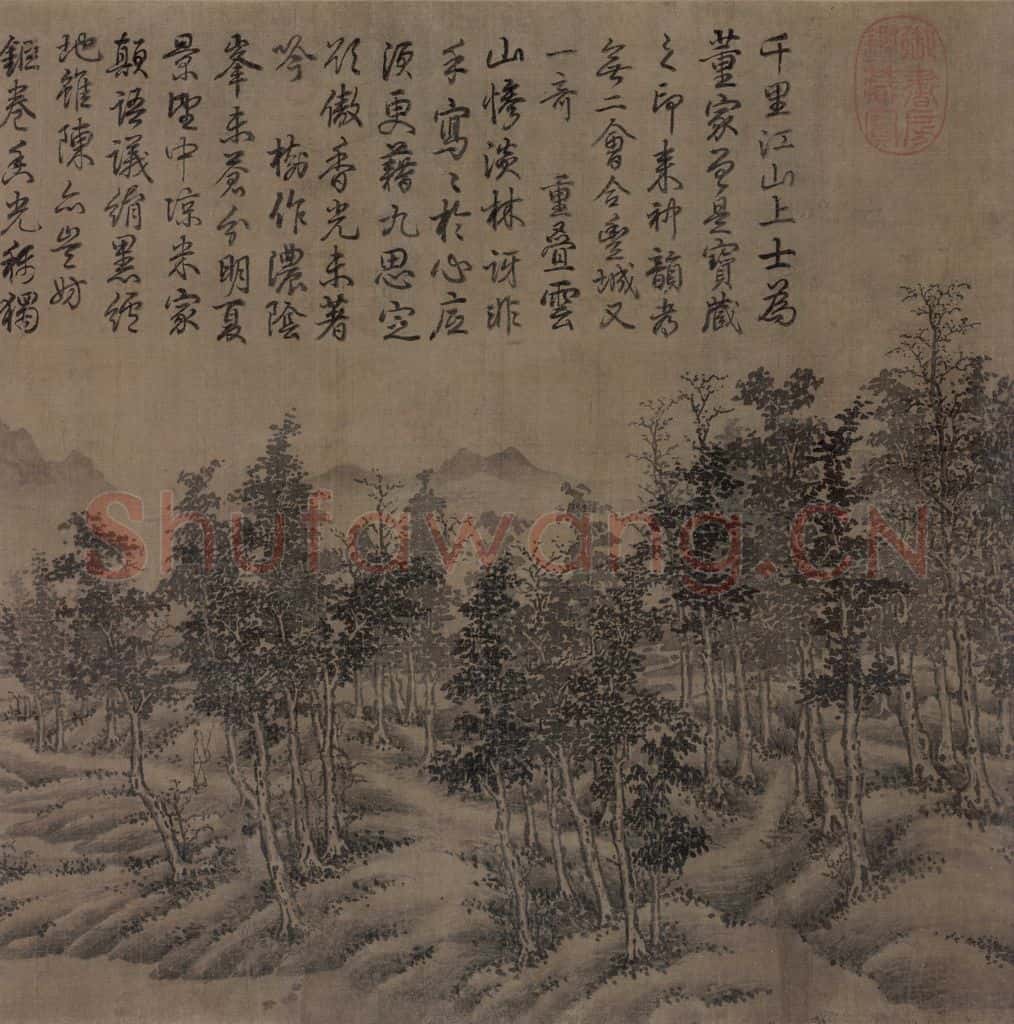 千里江山上士為
董家曾是寶藏
之印来神韻
無二會合豐城又
一奇 重疊雲
山慘淡林訝非
手寫〻於心應
須更藉九思定
欲傲香光未著
吟 樹作濃陰
峯未蒼分明夏
景望中涼米家
顛語議絹黑
地雖陳亦豈妨
鉅卷香光稱獨
Shufawang.CN